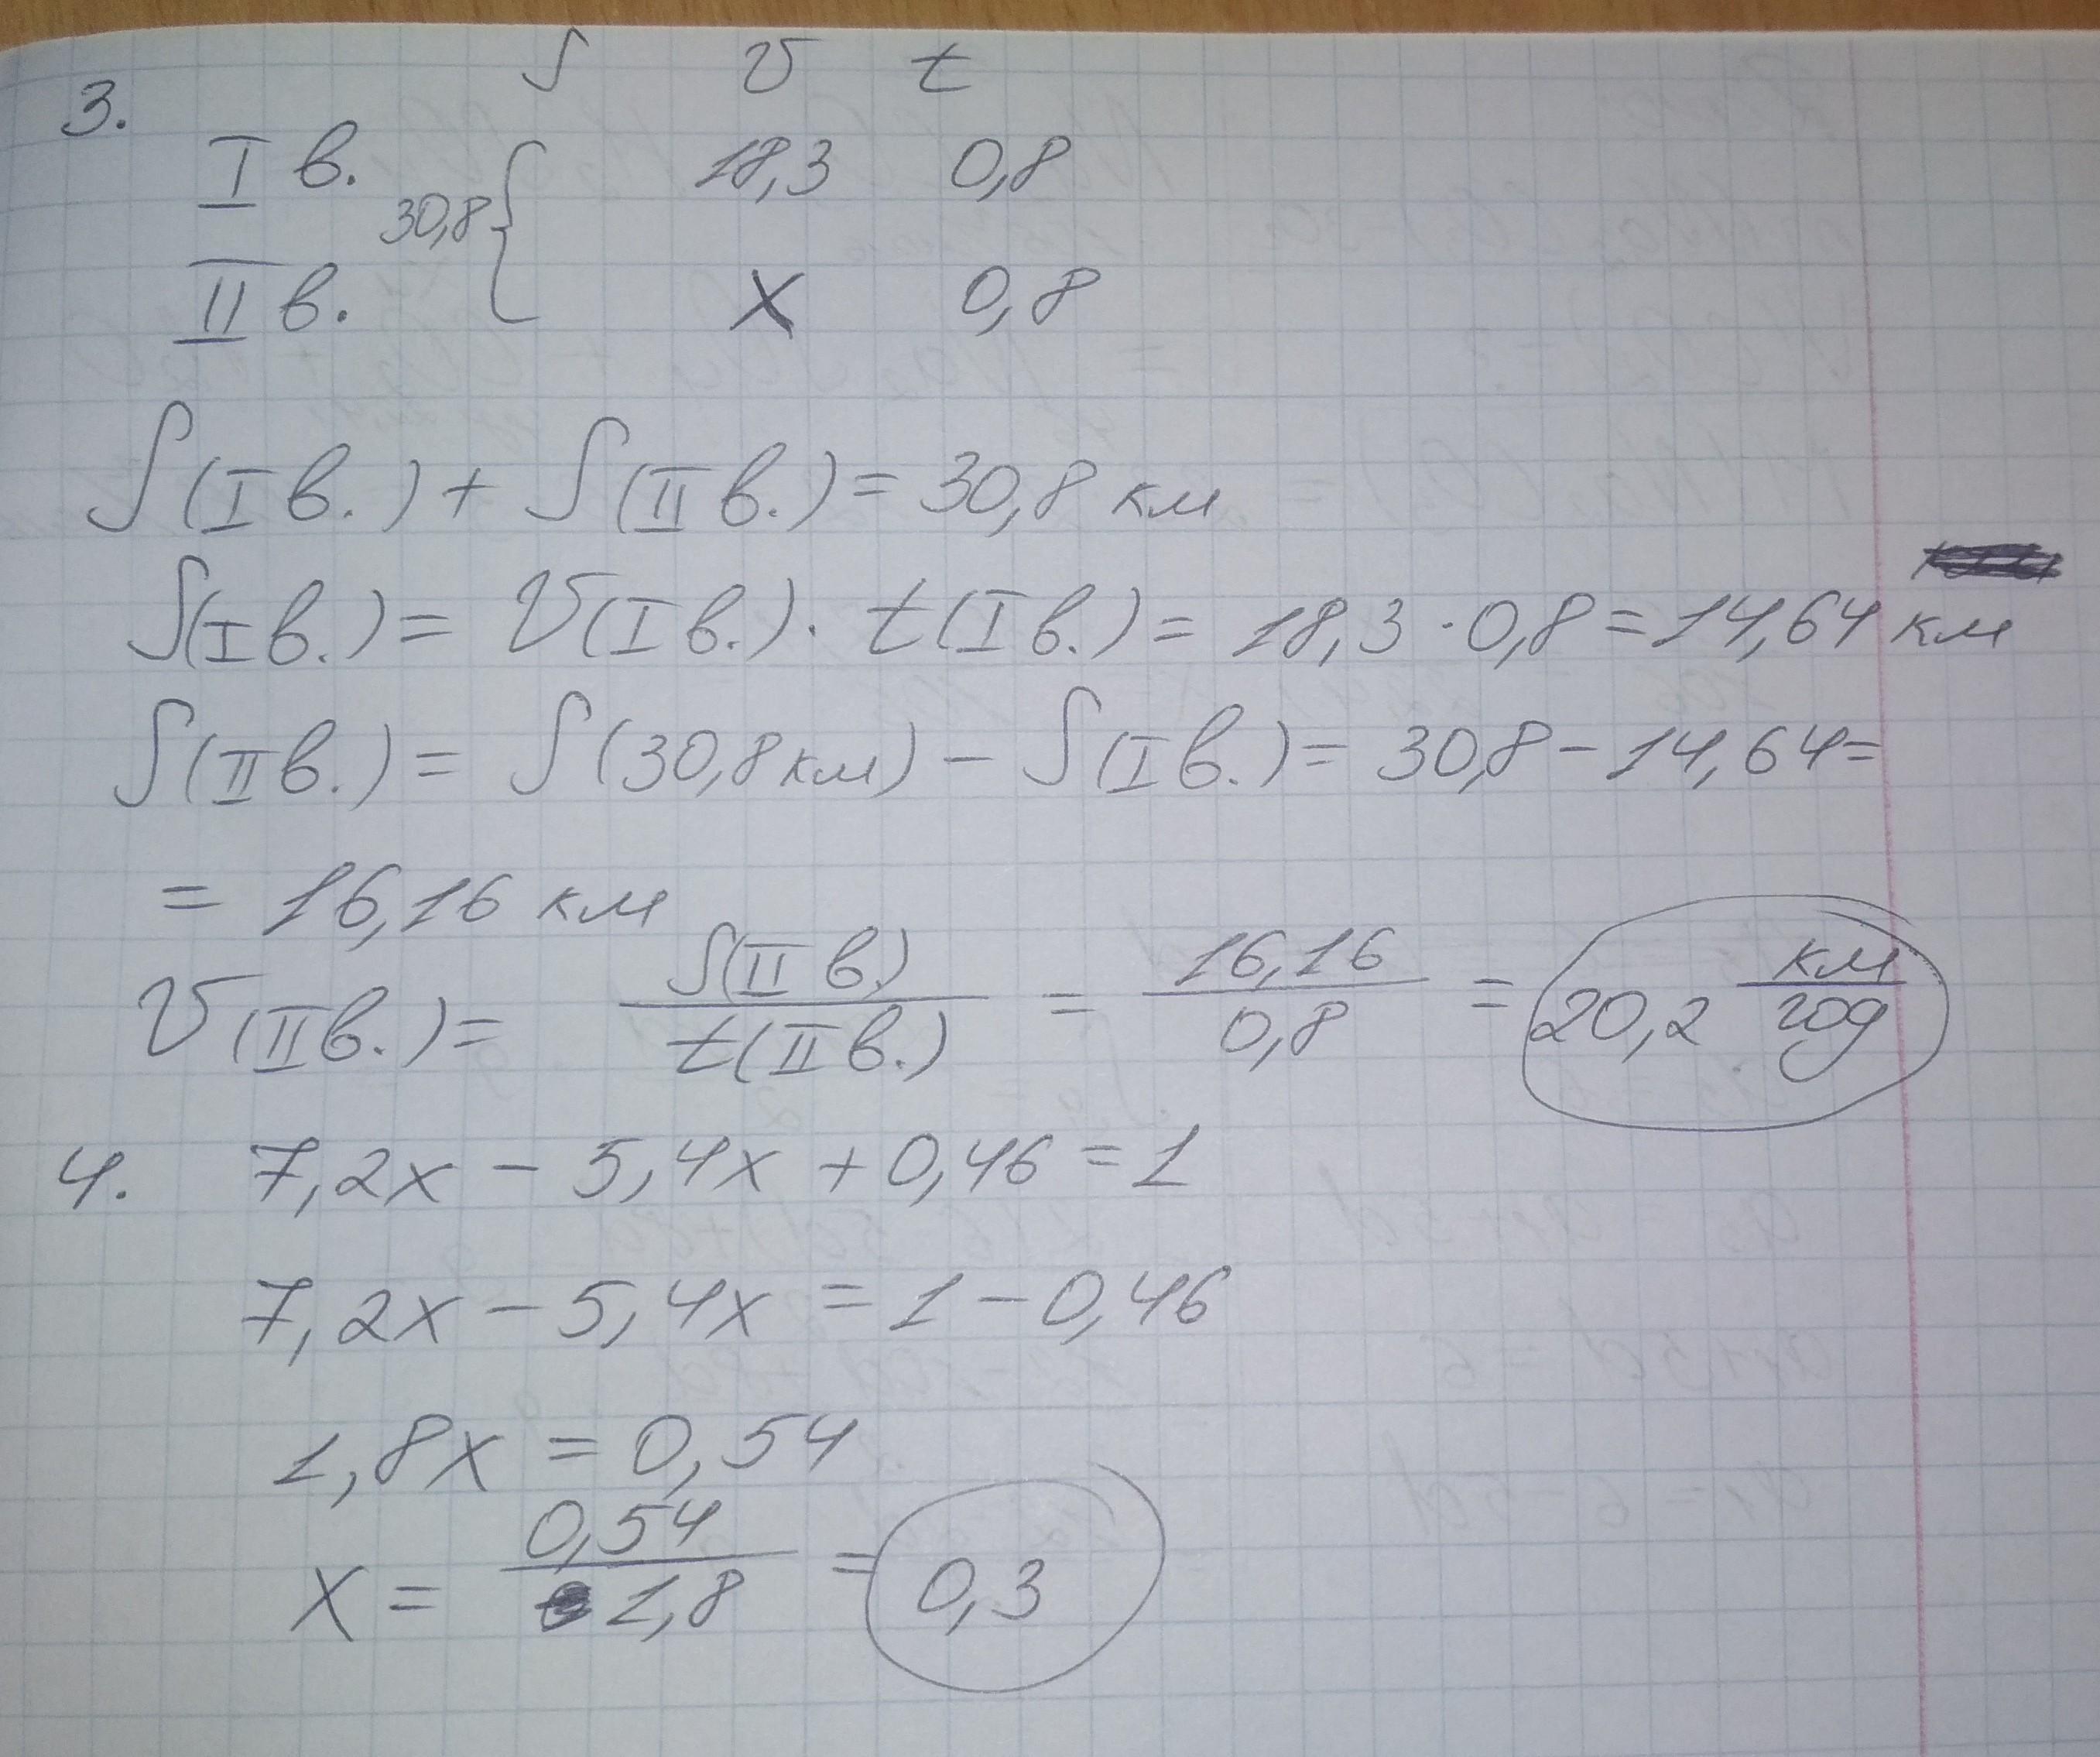 3. S V t
I в. 18,3 0,8
30,8 {
II в. x 0,8
S(I в.) + S(II в.) = 30,8 км
S(I в.) = V(I в.) · t(I в.) = 18,3 · 0,8 = 14,64 км
S(II в.) = S(30,8 км) − S(I в.) = 30,8 − 14,64 =
= 16,16 км
V(II в.) = S(II в.) / t(II в.) = 16,16 / 0,8 = 20,2 км/год
4. 7,2x − 5,4x + 0,46 = 1
7,2x − 5,4x = 1 − 0,46
1,8x = 0,54
x = 0,54 / 1,8 = 0,3